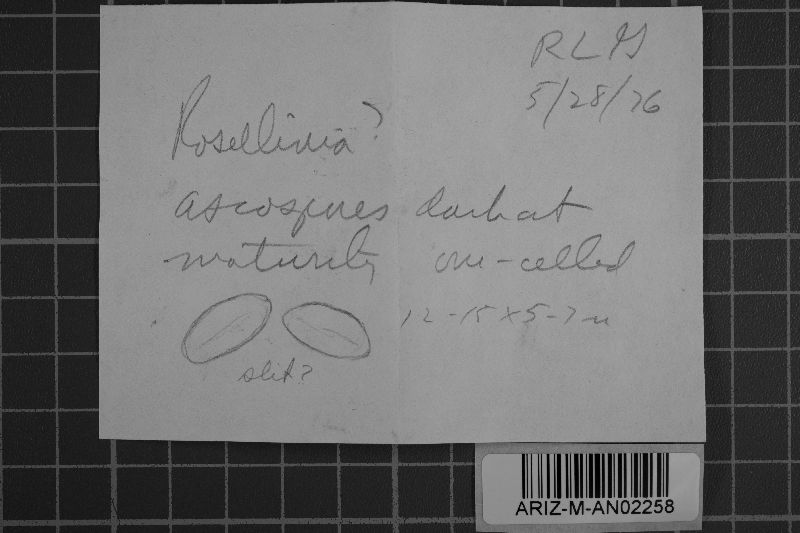 RLG
5/28/76
Rosellinia?
ascospores dark at
maturity one-celled
12-15 x 5-7 u
slit?
ARIZ-M-AN02258